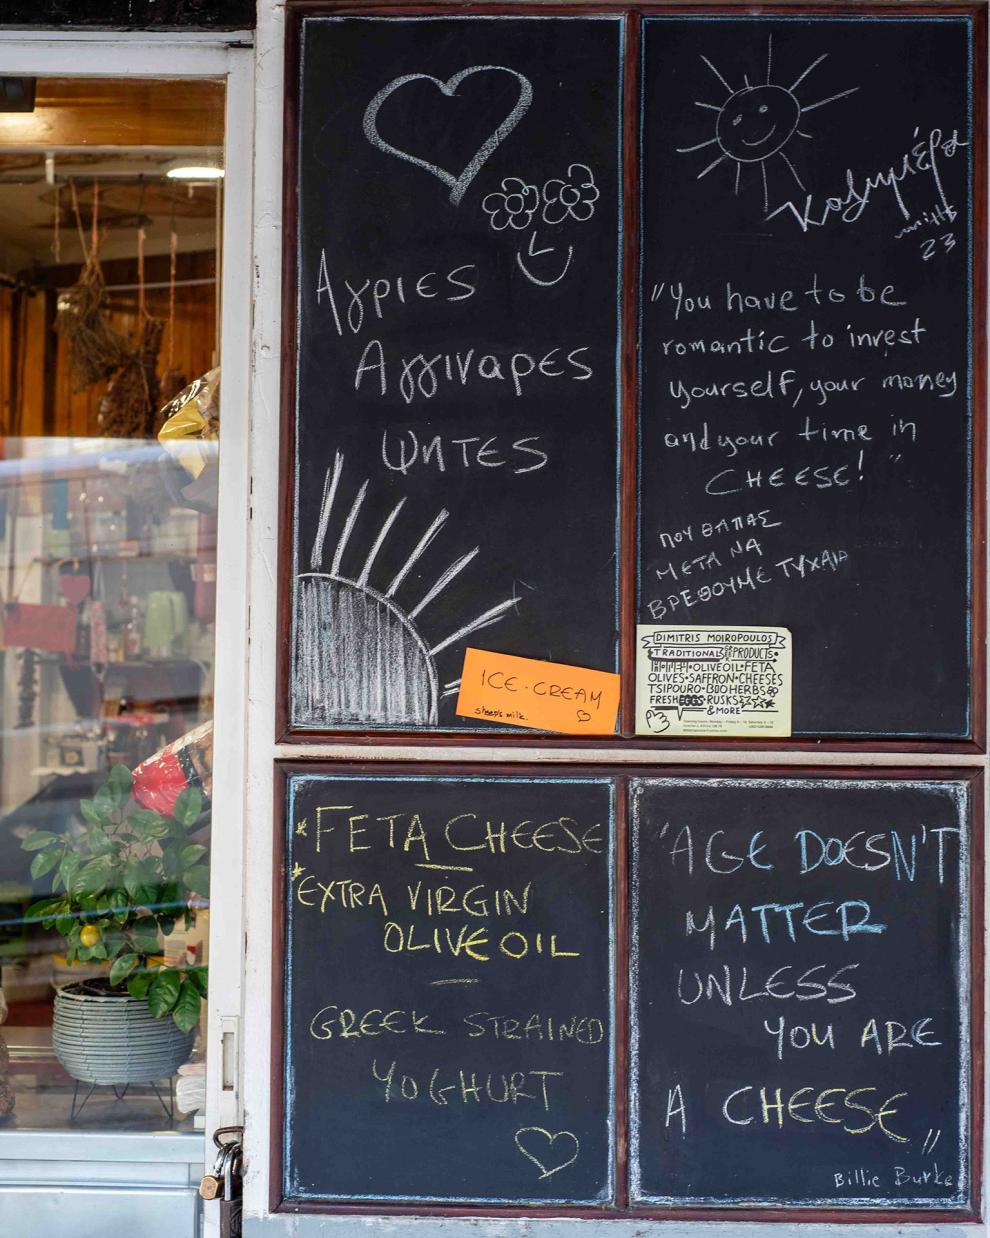 Αγριες
Αγγιναρες
Ψητες
ICE-CREAM
sheep's milk.
Καλημέρα
23
"You have to be
romantic to invest
yourself, your money
and your time in
CHEESE!"
ΠΟΥ ΘΑ ΠΑΣ
ΜΕΤΑ ΝΑ
ΒΡΕΘΟΥΜΕ ΤΥΧΑΙΑ
DIMITRIS MOIROPOULOS
TRADITIONAL PRODUCTS
OLIVE OIL•FETA
OLIVES•SAFFRON•CHEESES
TSIPOURO•HERBS
FRESH EGGS•RUSKS
& MORE
*FETA CHEESE
*EXTRA VIRGIN
OLIVE OIL
GREEK STRAINED
YOGHURT
"AGE DOESN'T
MATTER
UNLESS
YOU ARE
A CHEESE"
Billie Burke